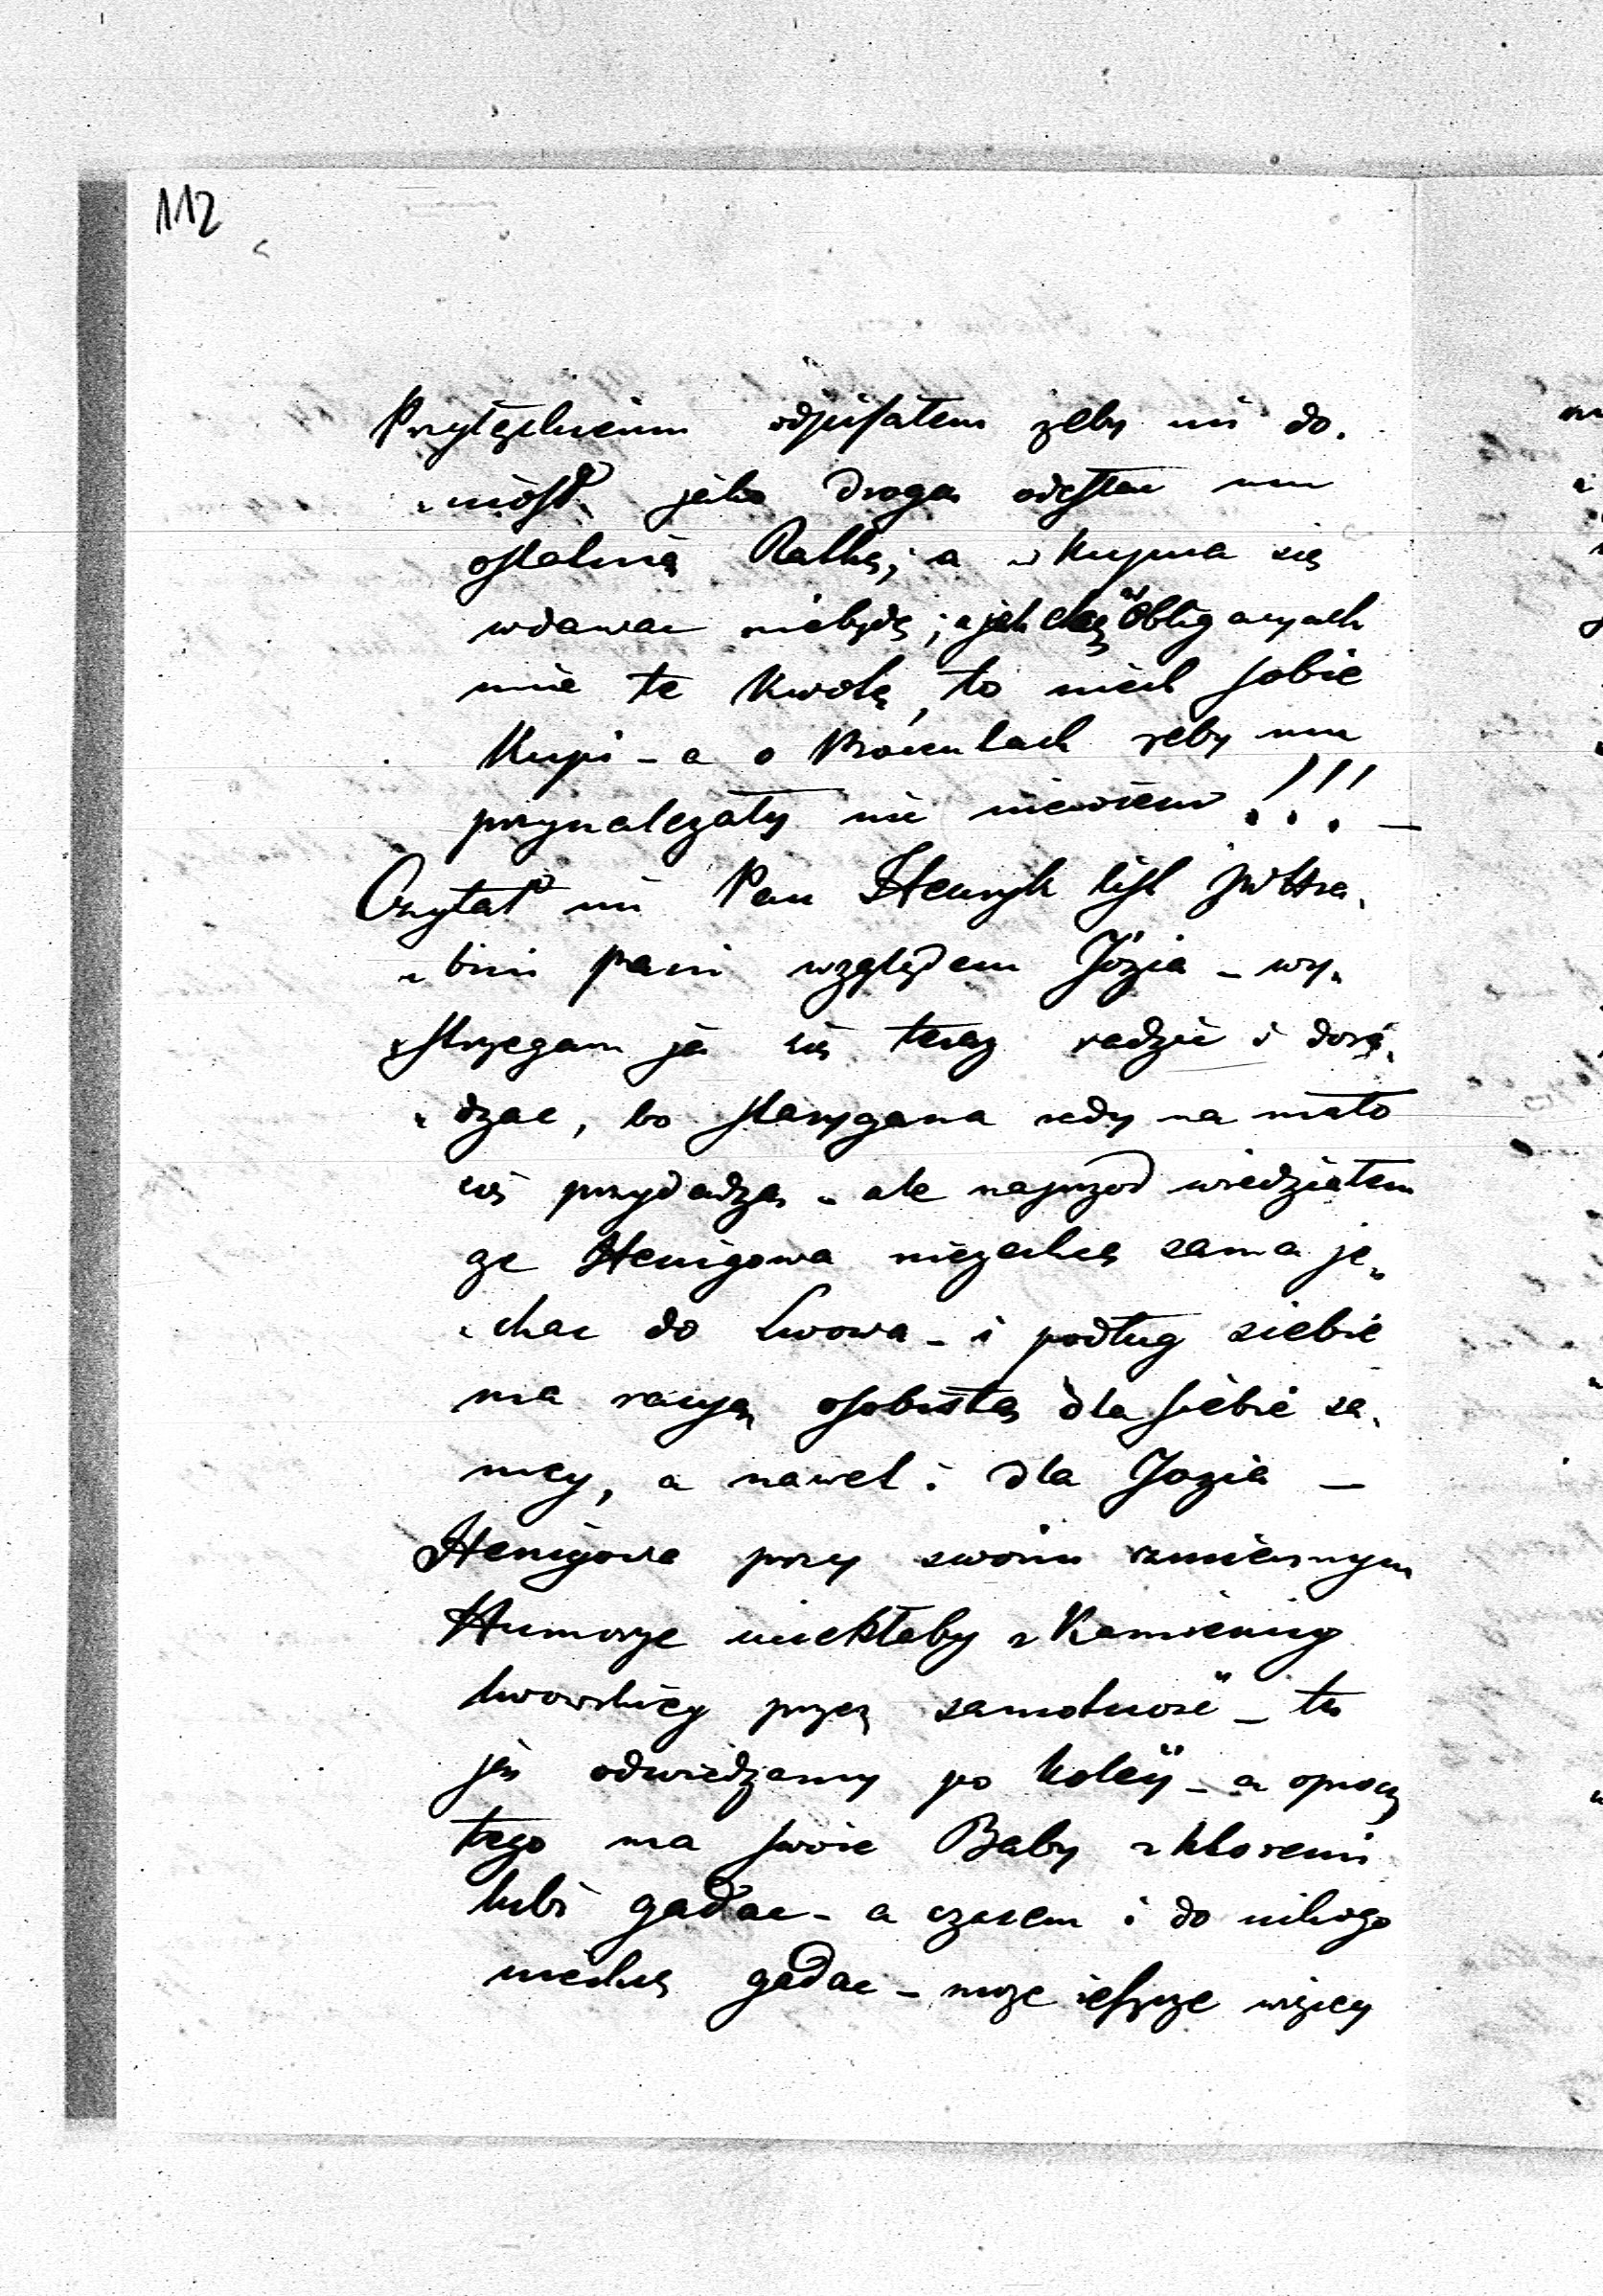 112
odpisałem żeby mi do„
„niosł jaka droga odesłac mu
ostatnią Ratkę; a w Kupna się
wdawac niebędę; a jak chcę w Obligacyach
mie te Kwotę, to niech sobie
Kupi - a o żeby mu
przynalezały nic niewiem !!! —
Czytał mi Pan Henryk list JWHra„
„bini Pani względem Józia - wy„
„strzegam ja się teraz radzic i dora„
„dzac, bo starygana redy na mało
się przydadzą - ale naprzod wiedziałem
ze Henigowa niezechcę sama je„
„chac do Lwowa - i podług siebie
ma racyą osobistą dla siebie sa„
mey, a nawet i dla Jozia —
Henigowa przy swoim zmiennym
Humorze uciekłaby z Kamienicy
lwowskiey przez samotność - tu
ją odwiedzamy po koleÿ - a oprocz
tego ma swoie Baby z ktoremi
lubi gadac - a czasem i do nikogo
niechcę gadac - moze ieszcze więcey